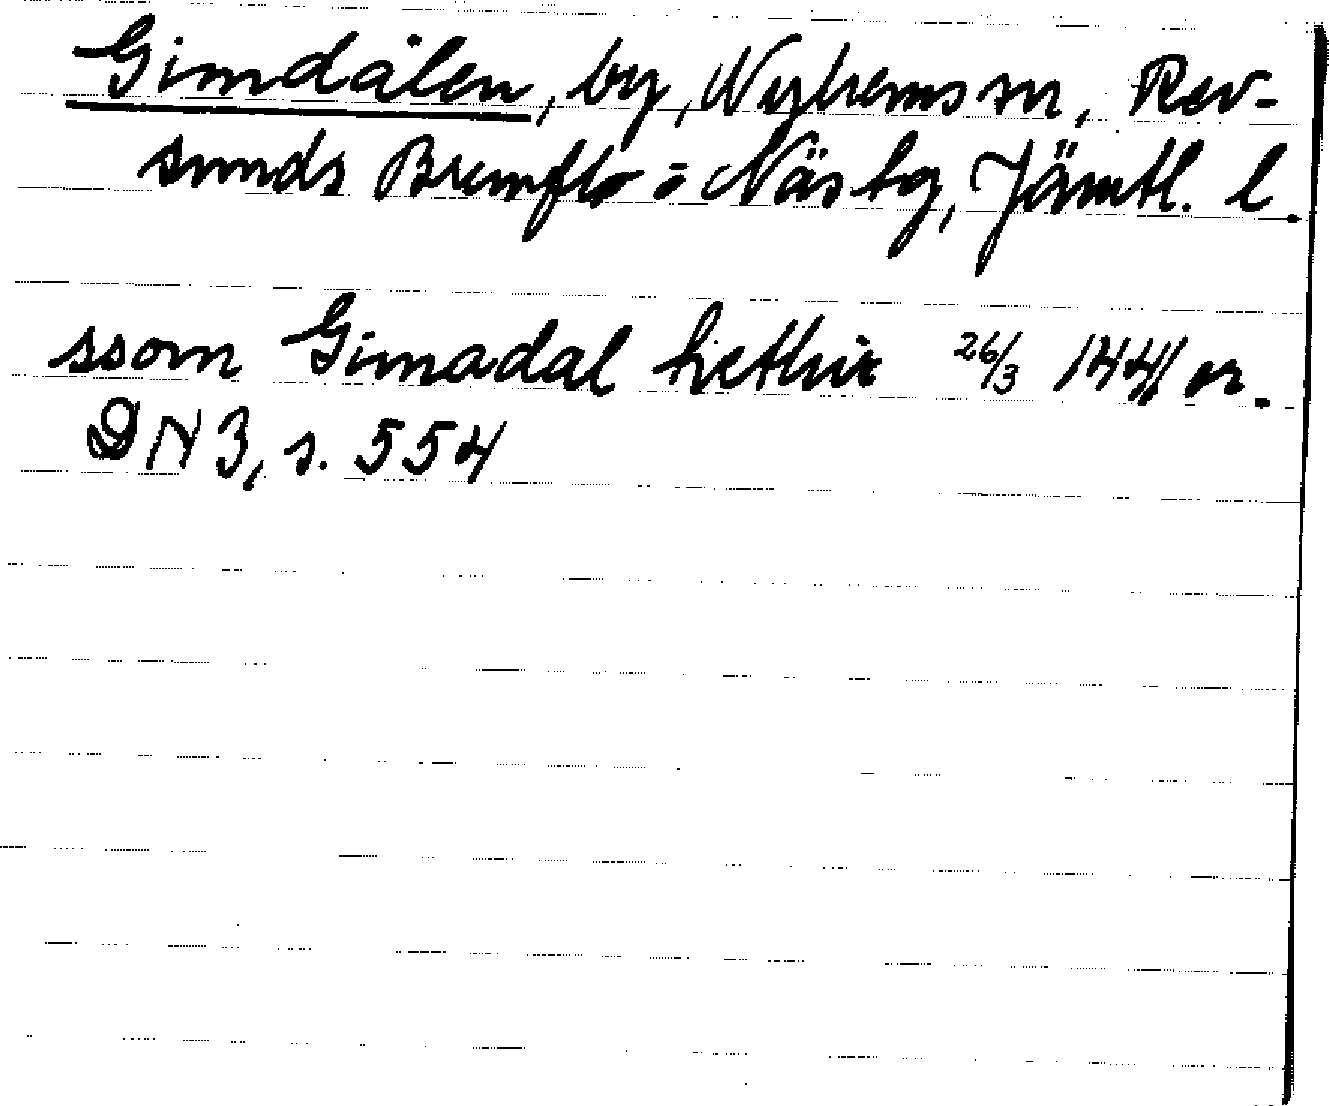 Gimdalen, by, Nyhems sn, Rev-
sunds Brunflo o Näs tg, Jämtl. l.
ssom Gimadal hethir 26/3 1441 or.
DN 3, s. 554